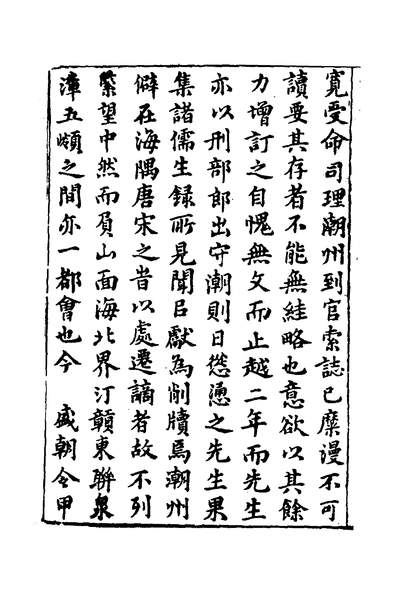 寛受命司理潮州到官索誌已糜漫不可
讀要其存者不能無絓略也意欲以其餘
力增訂之自愧無文而止越二年而先生
亦以刑部郎出守潮則日慫慂之先生果
集諸儒生録所見聞㠯獻為削牘焉潮州
僻在海隅唐宋之昔以處遷謫者故不列
緊望中然而負山面海北界汀贛東聯泉
漳五頫之間亦一都會也今　盛朝令甲